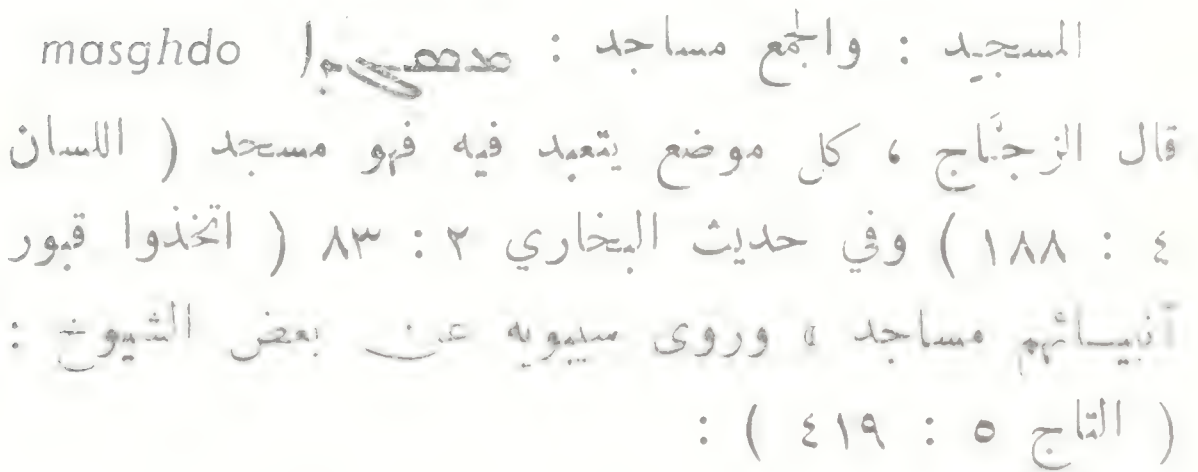 المسجد : والجمع مساجد : ܡܣܓܕܐ masghdo
قال الزجَّاج ، كل موضع يتعبد فيه فهو مسجد ( اللسان
٤ : ١٨٨ ) وفي حديث البخاري ٢ : ٨٣ ( اتخذوا قبور
أنبيـائهم مساجد » وروى سيبويه عن بعض الشيوخ :
( التاج ٥ : ٤١٩ ) :